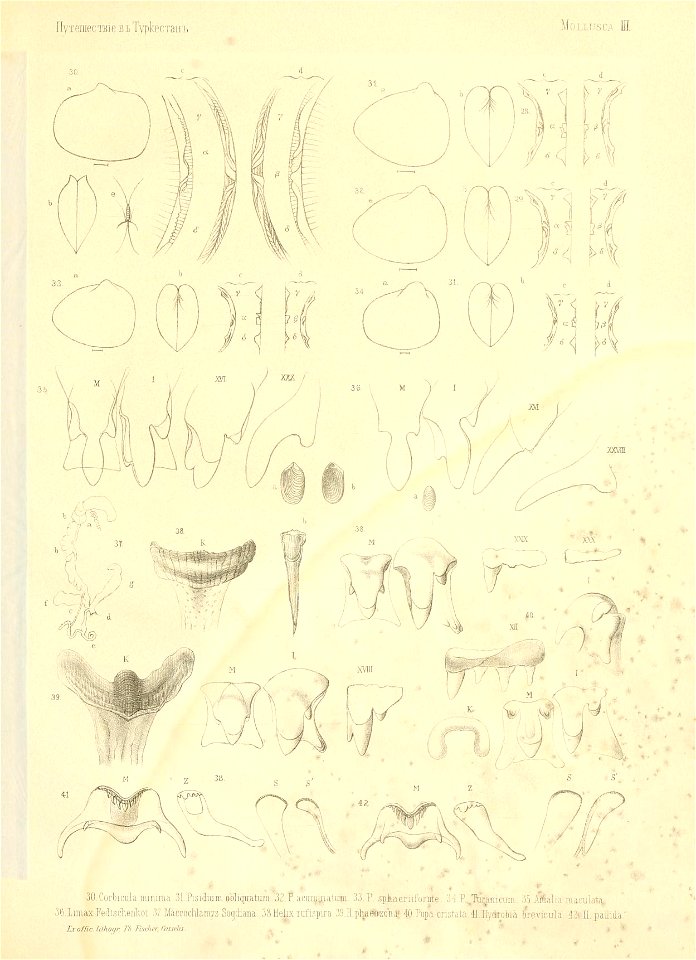 Путешествіе въ Туркестанъ
MOLLUSCA III.
30 c d 31.
a a b c d
γ γ γ γ
28.
α α β
β
δ δ
b e δ δ
32. c d
a 29.
33. a b c d 34. a 31. b c d
γ γ γ γ
α β α β
δ δ δ δ
35 M I XVI XXX 36 M I XVI XXVIII
a b a
37. 38. K b 38. M XXX XXX
h g
f d
e
40. I
XII
39. K M L XVIII K M I
41. M Z 38. S S' 42. M Z S S'
30 Corbicula minima. 31. Pisidium obliquatum. 32. P. acuminatum. 33. P. sphaeriiforme. 34. P. Turanicum. 35. Amalia maculata.
36. Limax Fedtschenkoi. 37. Macrochlamys Sogdiana. 38 Helix rufispira. 39. H. phaeozona. 40. Pupa cristata. 41. Hydrobia brevicula. 42. H. pallida.
Ex offic. lithogr. Th. Fischer, Cassels.